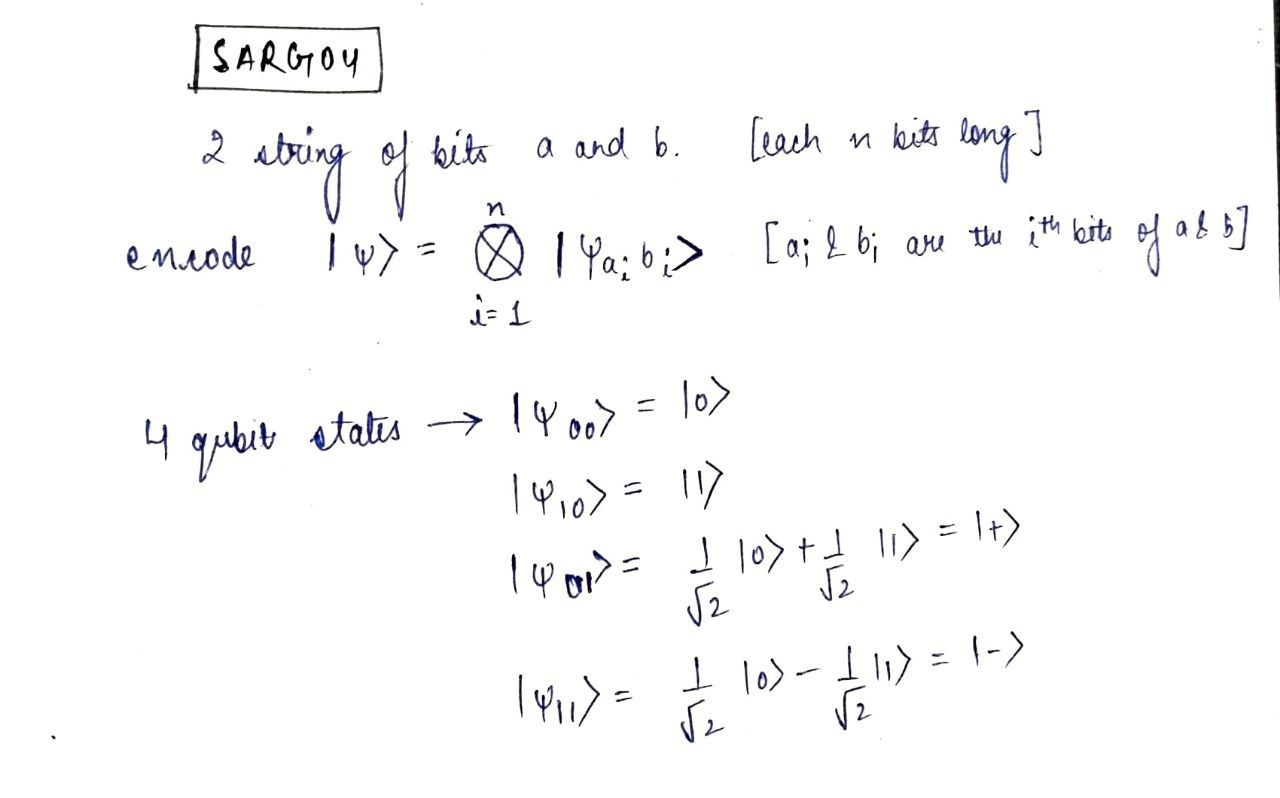 SARG04
2 string of bits a and b. [each n bits long]
encode |ψ> = ⊗ⁿᵢ₌₁ |ψaᵢbᵢ> [aᵢ & bᵢ are the iᵗʰ bits of a & b]
4 qubit states → |ψ₀₀> = |0>
|ψ₁₀> = |1>
|ψ₀₁> = 1/√2 |0> + 1/√2 |1> = |+>
|ψ₁₁> = 1/√2 |0> - 1/√2 |1> = |->